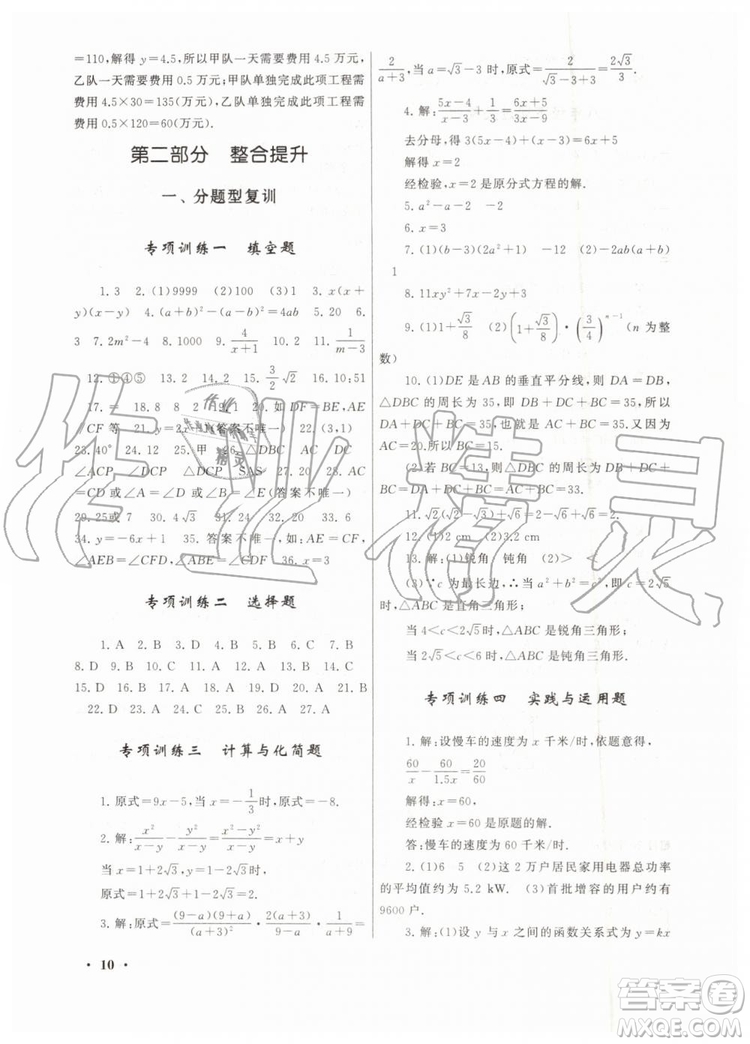 =110,解得 y=4.5,所以甲队一天需要费用 4.5 万元,
乙队一天需要费用 0.5 万元;甲队单独完成此项工程需
费用 4.5×30=135(万元),乙队单独完成此项工程需费
用 0.5×120=60(万元).
第二部分 整合提升
一、分题型复训
专项训练一 填空题
1.3 2.(1)9999 (2)100 (3)1 3.x(x+
y)(x-y) 4.(a+b)²-(a-b)²=4ab 5.20 6.
3 7.2m²-4 8.1000 9.4/(x+1) 10.x=2 11.1/(m-3)
12.①④⑤ 13.14 14.2 15.(3/2)√2 16.10:51
17.= 18.8 8 2 19.2 20.如 DF=BE,AE
CF 等 21.y=2x(答案不唯一) 22.(3,1)
23.40° 24.12 25.甲 26.△ABC △ADC
∠ACP=∠DCP △DCP SAS 27.AC=
CD 或∠A=∠D 或∠B=∠E(答案不唯一)
29.25或 7 30.4√3 31. 32. 33.6
34.y=-6x+1 35.答案不唯一,如:AE=CF,
∠AEB=∠CFD,∠ABE=∠CDF 36.<
专项训练二 选择题
1.A 2.B 3.D 4.D 5.A 6.C 7.D
8.D 9.D 10.D 11.C 12.D 13.C 14.A
15.B 16.B 17.A 18.D 19.C 20.A 21.A
22.D 23.D 24.D 25.D 26.B 27.A
专项训练三 计算与化简题
1.原式=9x-5,当 x=-1/3时,原式=-8.
2.解:x²/(x-y)-y²/(x-y)=(x²-y²)/(x-y)=x+y
当 x=1+2√3,y=1-2√3时,
原式=1+2√3+1-2√3=2.
3.解:原式=(9-a)(9+a)/(a+3)²·2(a+3)/(9-a)·1/(a+9)=
· 10 ·
2/(a+3),当 a=√3-3时,原式=2/(√3-3+3)=2√3/3.
4.解:(5x-4)/(x-3)+1/3=(6x+5)/(x+3)
去分母,得 3(5x-4)+(x-2)=6x+
解得 x=2
经检验,x=2 是原分式方程的解.
5.a²-a-2 -2
6.x=3
7.(1)(b-3)(2x+a) -12 (2)-2ab(a+b)
1
8.11xy²+7x²y-8
9.(1)1+√3/8 (2)(1+√3/8)·(3/4)ⁿ⁻¹(n 为整
数)
10.(1)DE 是 AB 的垂直平分线,所以 DA=DB,
△DBC 的周长为 35,即 DB+DC+BC=35,所以
AD+DC+BC=35,也就是 AC+BC=35,又因为
AC=20,所以 BC=15.
(2)若 BC=13,根据前面的推导,△DBC 的周长=
AC+BC=20+13=33.
11.√2(√2-√3)+√6=(√2)²-√6+√6=2
12.(1)2 cm (2)3.2 cm
13.解:(1)锐角 钝角 (2)> <
(3)∵c 为最长边,∴当 a²+b²=c²,即 c=2√5
时,△ABC 是直角三角形;
当 4<c<2√5时,△ABC 是锐角三角形;
当 2√5<c<6 时,△ABC 是钝角三角形.
专项训练四 实践与运用题
1.解:设慢车的速度为 x 千米/时,依题意得,
60/x-60/1.5x=20/60
解得:x=60,
经检验 x=60 是原题的解.
答:慢车的速度为 60 千米/时.
2.(1)6 5 (2)这 2 万户居民家用电器总功率
的平均值约为 5.2 kW. (3)首批增容的用户约有
9600 户.
3.解:(1)设 y 与 x 之间的函数关系式为 y=kx
作业精灵
答案圈
MXQE.COM